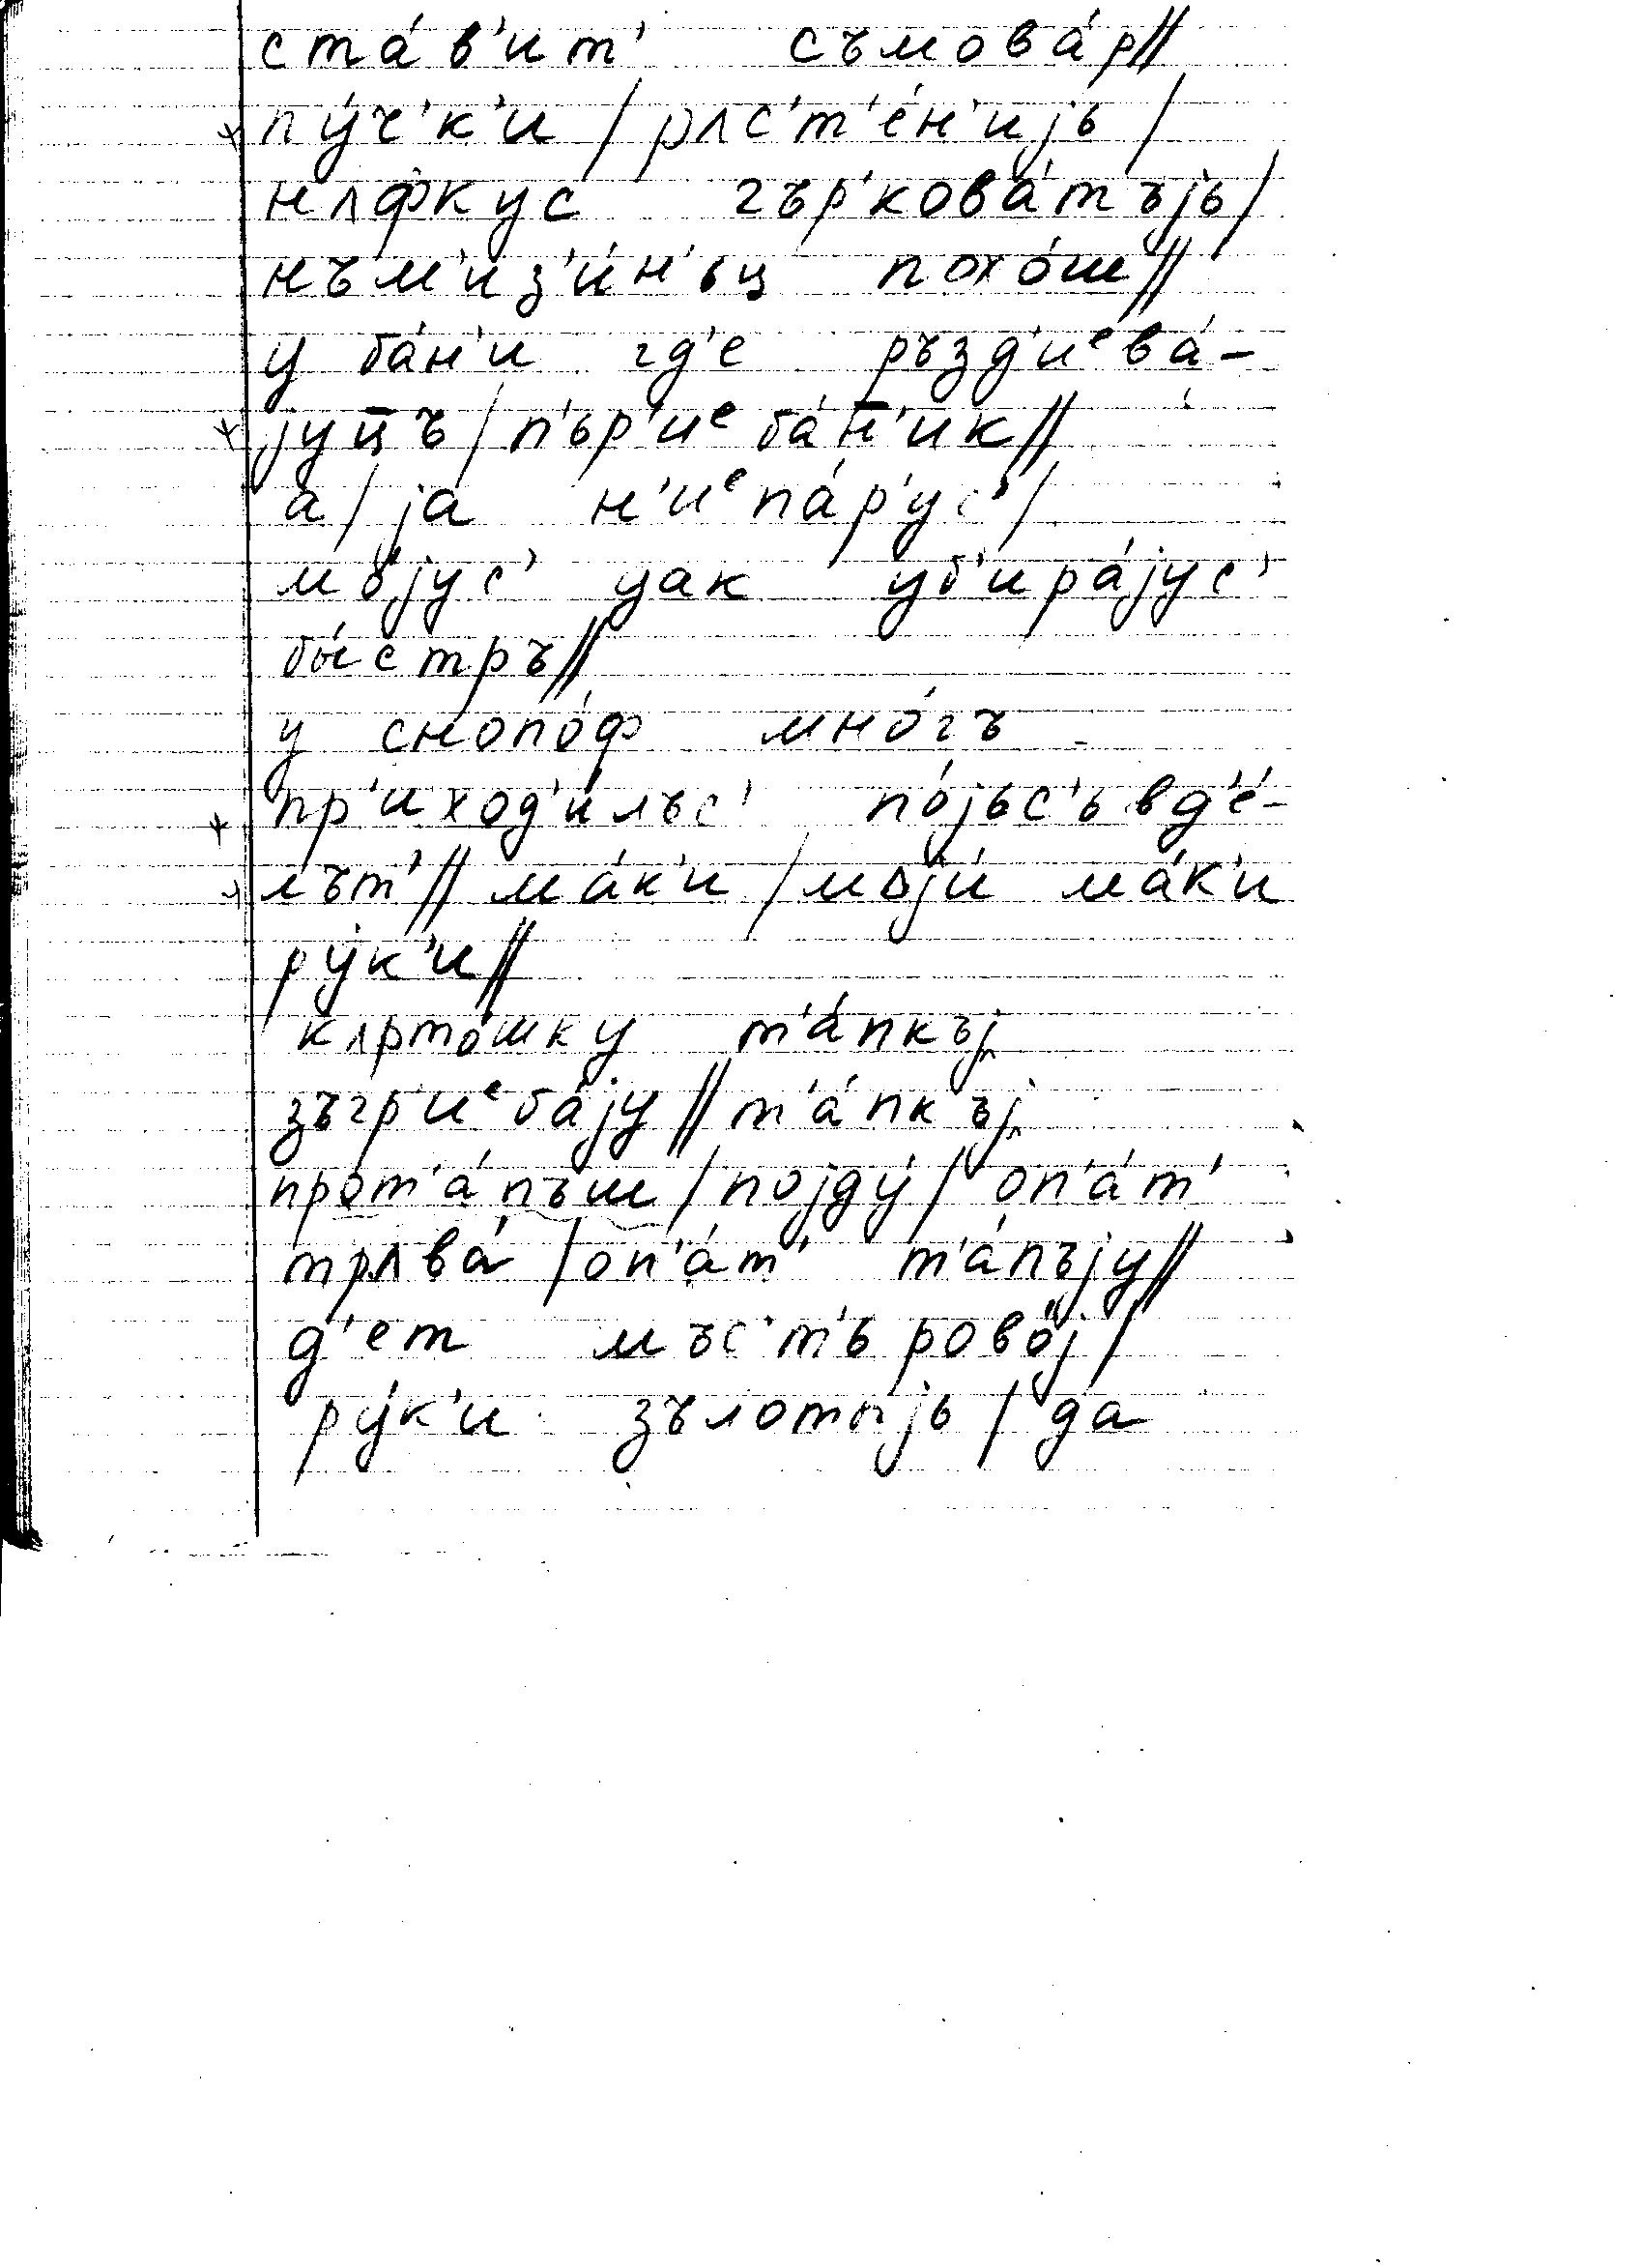 ста́в'ит' съмова́р//
пу́ч'к'и / рʌс'т'е́н'иjь /
нʌфкус гър'кова́тъjь /
нъм'из'и́н'ьц похо́ш //
у ба́н'и гд'е ръзд'иᵉва́-
jуц̅ъ / п'ьр'иᵉба́н̅'ик //
а / jа н'иᵉпа́р'ус' /
мо́jус' уак уб'ира́jус'
бы́стръ //
у снопо́ф мно́гъ
пр'иход'и́лъс' по́jьс'ь вд'е́-
лът' // ма́к'и / моjи́ ма́к'и
ру́к'и //
кʌрто́шку т'а́пкъj
зъгр'иᵉба́jу // т'а́пкъj
прот'а́пъш / поjду́ / оп'а́т'
трʌва́ / оп'а́т' т'а́пъjу //
д'ет мъс'т'ьрово́j /
ру́к'и зълоты́jь / да